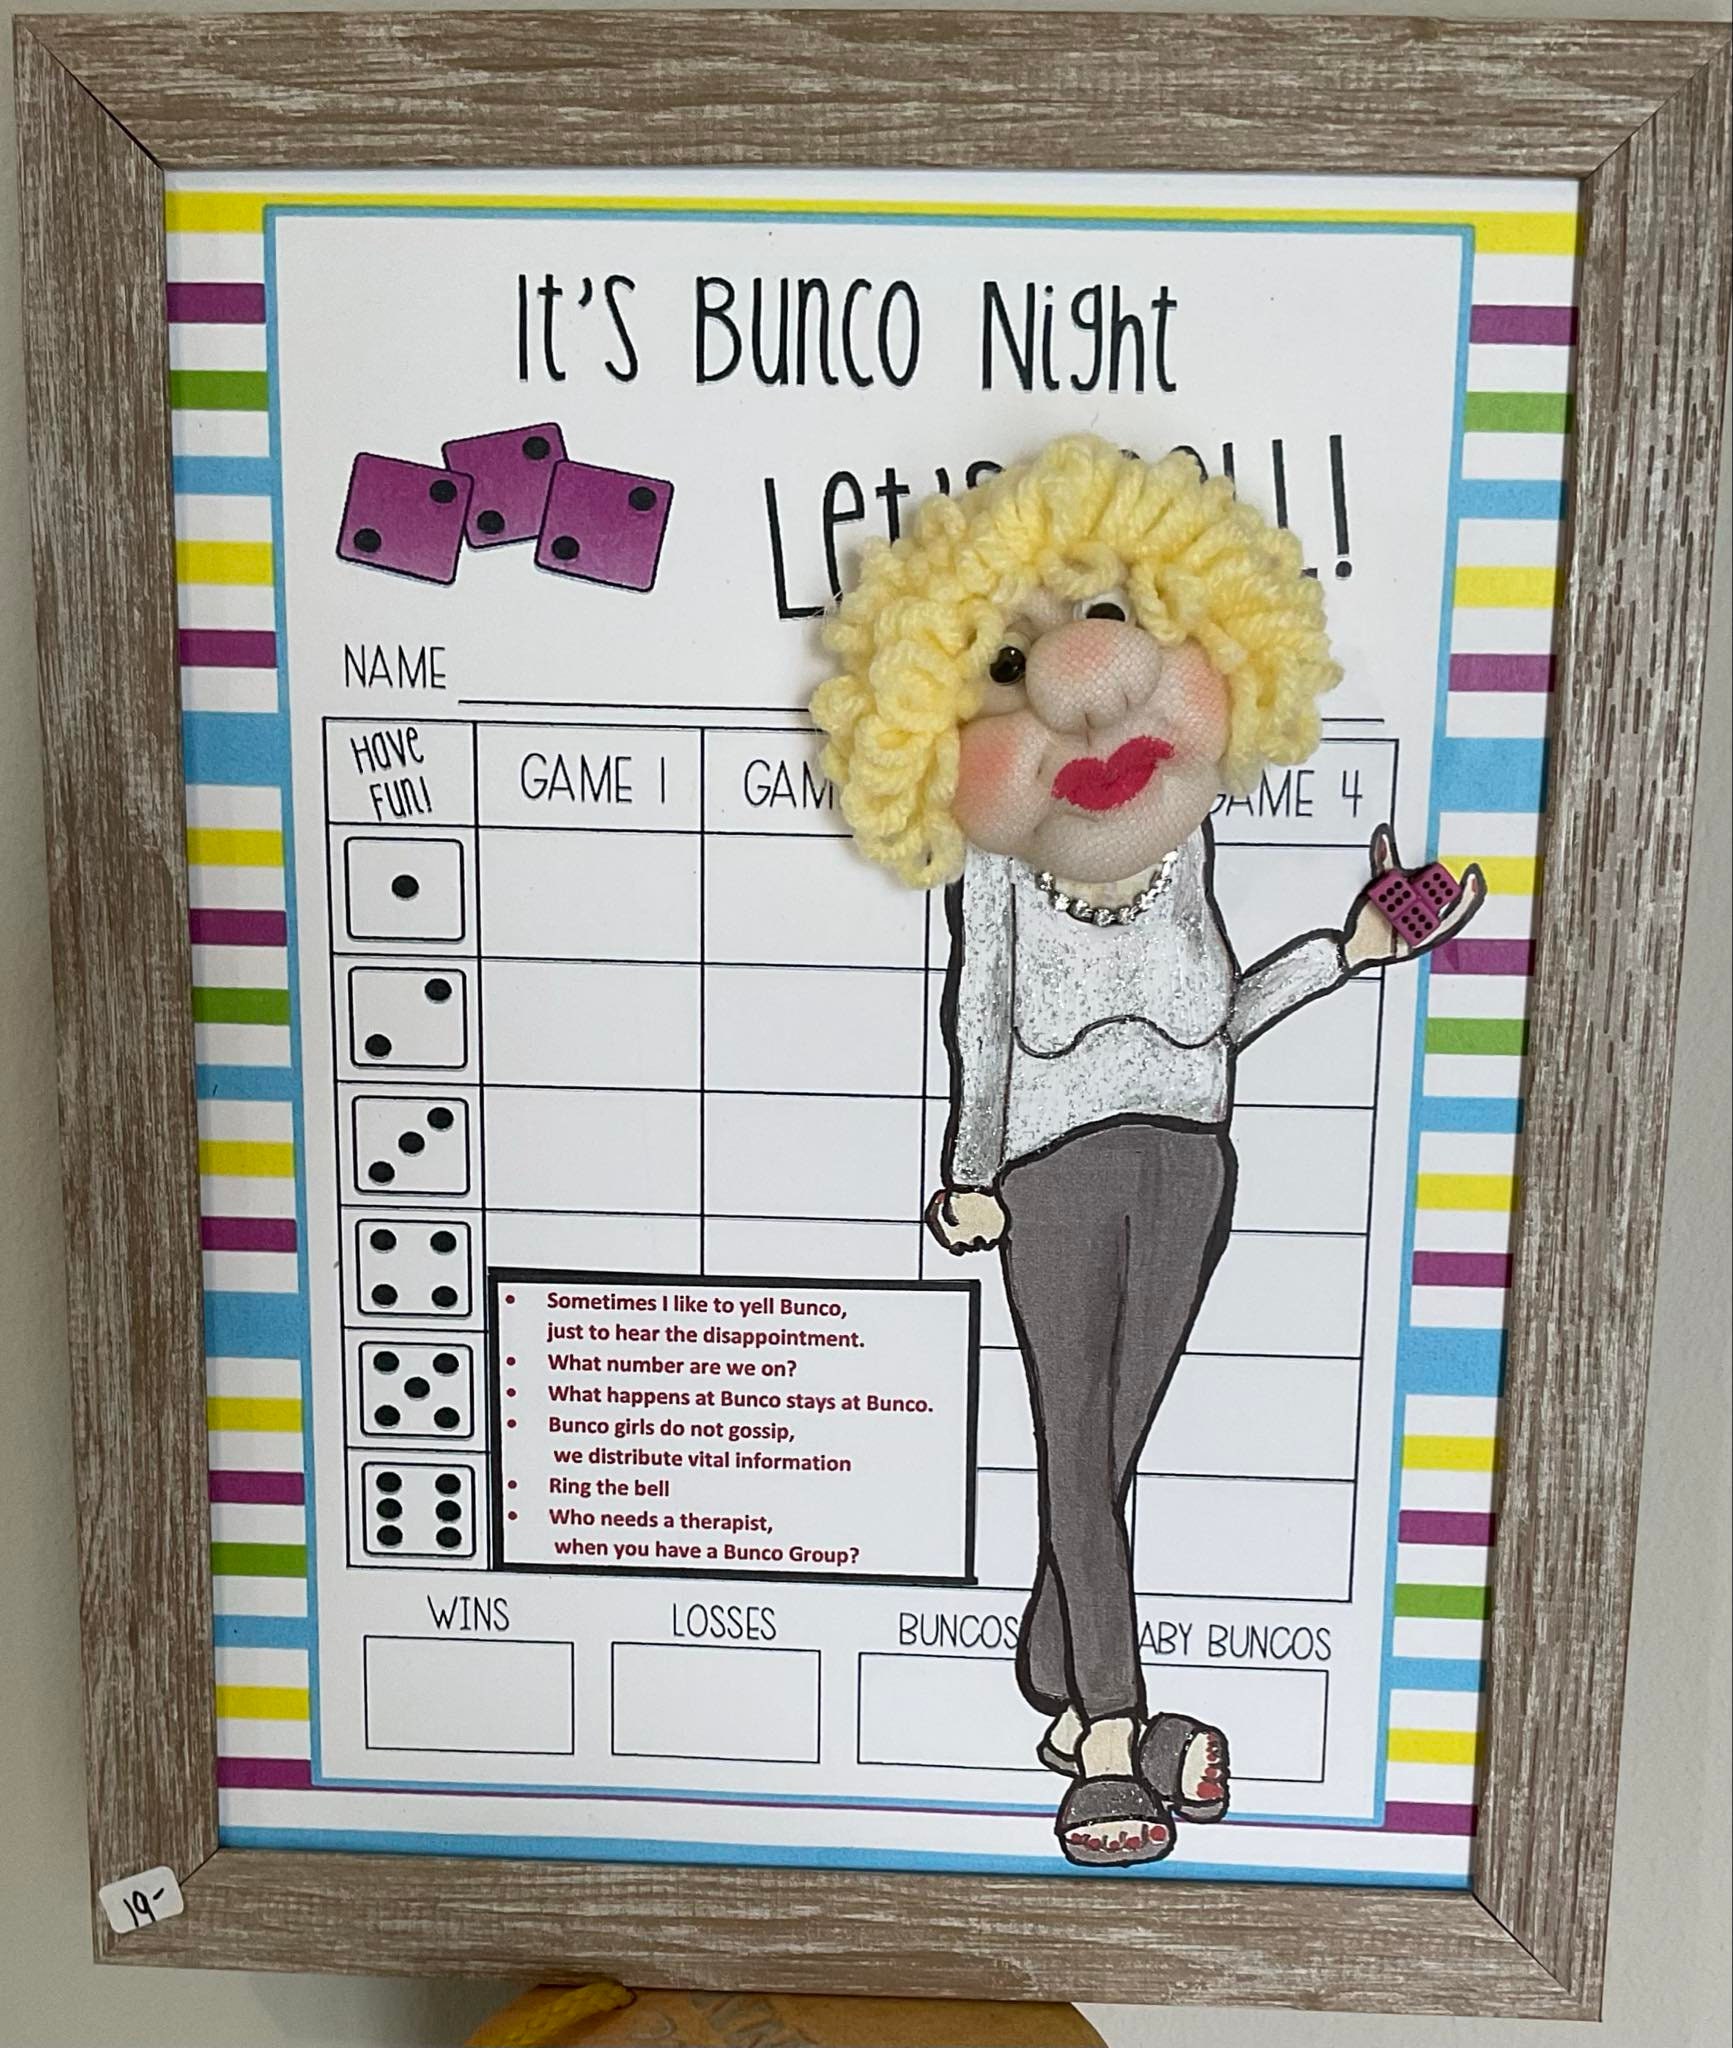 It's Bunco Night
Let's
NAME
Have
Fun!
GAME 1
GAME 4
• Sometimes I like to yell Bunco,
just to hear the disappointment.
• What number are we on?
• What happens at Bunco stays at Bunco.
• Bunco girls do not gossip,
we distribute vital information
• Ring the bell
• Who needs a therapist,
when you have a Bunco Group?
WINS
LOSSES
BUNCOS
BUNCOS
19-